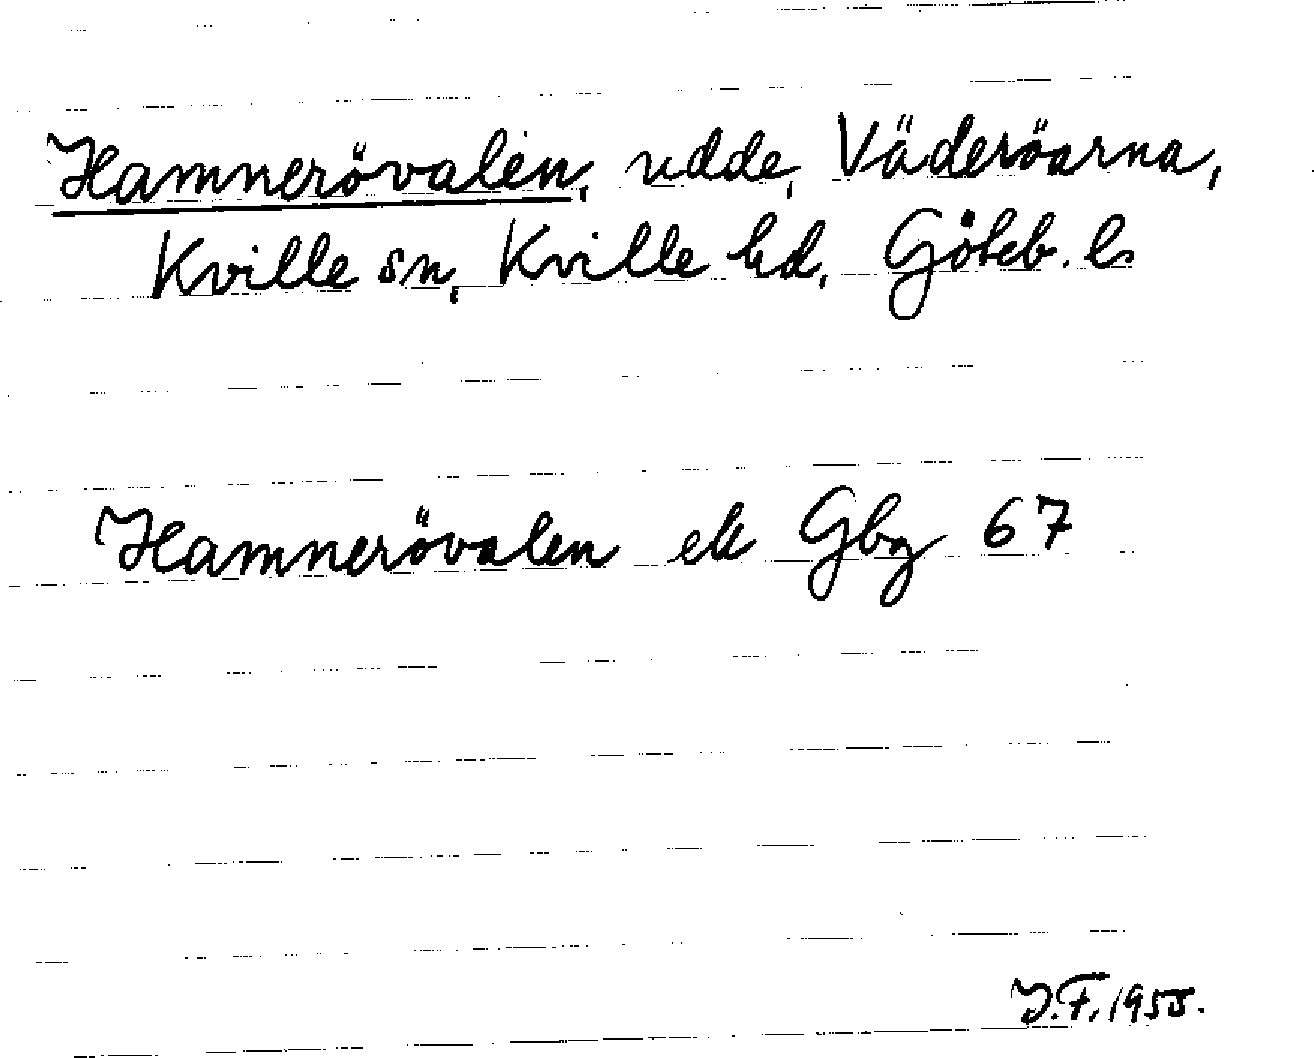 Hamnerövalen, udde, Väderöarna,
Kville sn, Kville hd, Göteb. l.
Hamnerövalen ek Gbg 67
J.F. 1955.